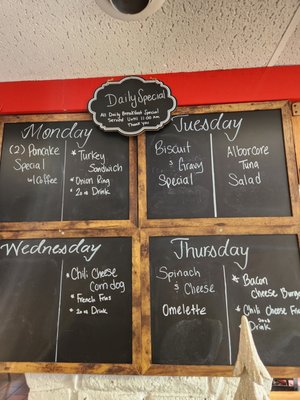 Daily Special
All Daily Breakfast Special
Served Until 11:00 AM
Thank you
Monday
(2) Pancake
Special
w/Coffee
*Turkey
Sandwich
*Onion Ring
*20oz Drink
Tuesday
Biscuit
& Gravy
Special
Alborcore
Tuna
Salad
Wednesday
*Chili Cheese
Corndog
*French Fries
*20oz Drink
Thursday
Spinach
& Cheese
Omelette
*Bacon
Cheese Burger
*Chili Cheese Fries
Drink